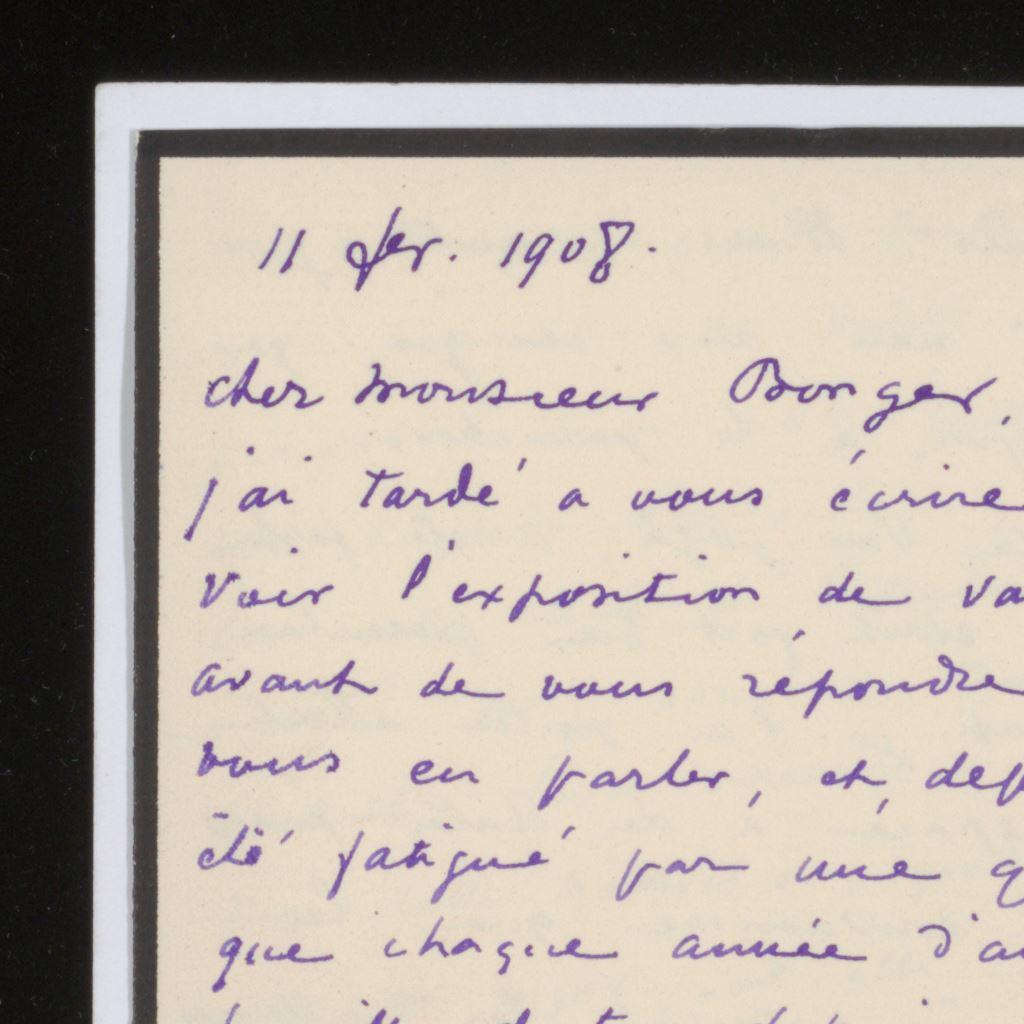 11 fev. 1908.
cher Monsieur Bonger,
j'ai tardé a vous écrire
voir l'exposition de va
avant de vous répondre
vous en parler, et, dep
été fatigué par une g
que chaque année d'au